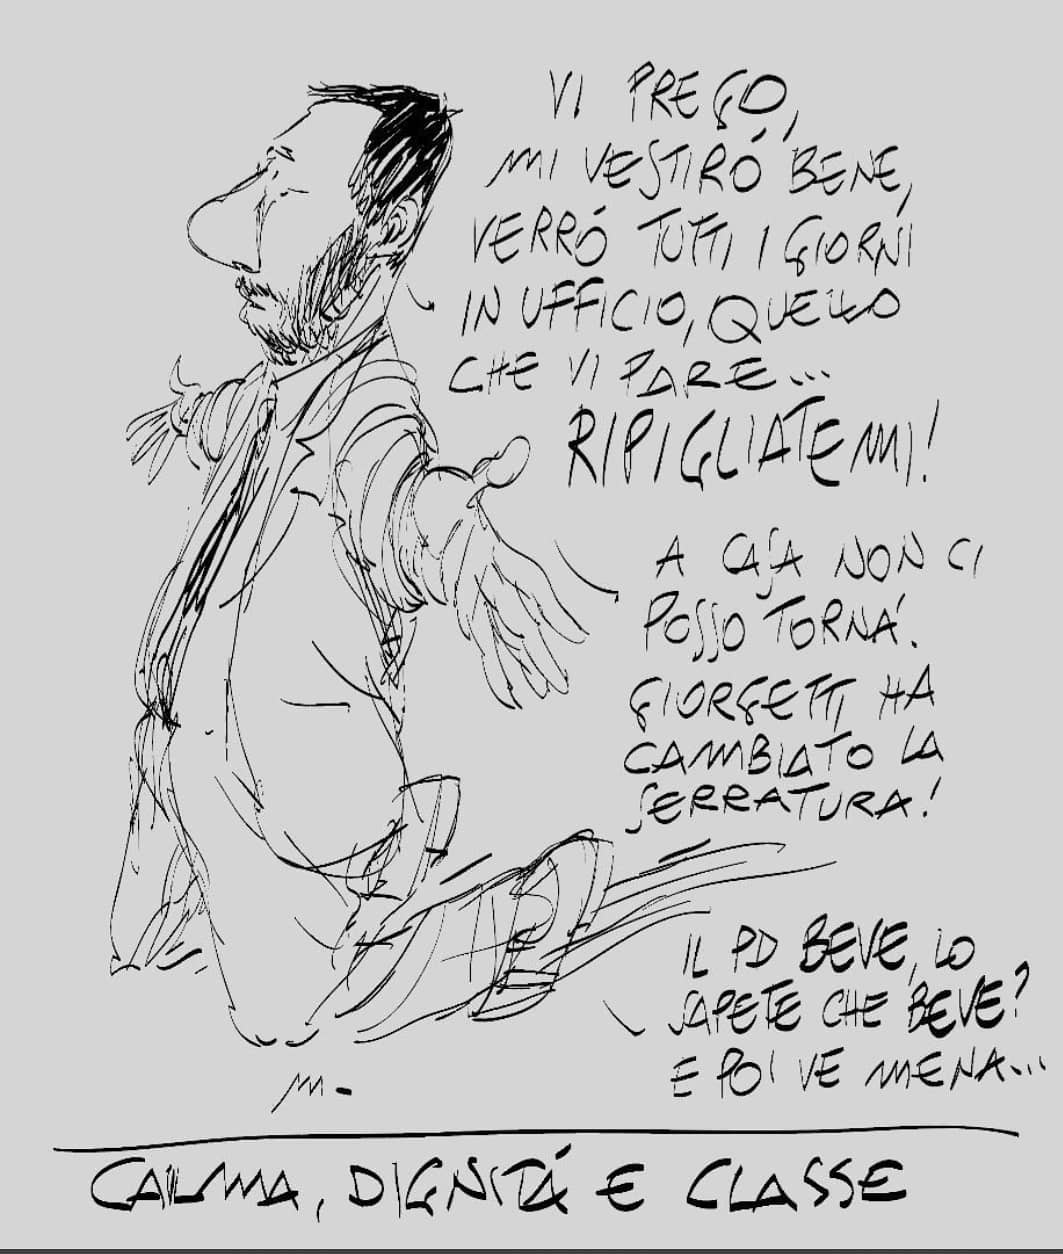 VI PREGO,
MI VESTIRÓ BENE,
VERRÓ TUTTI I GIORNI
IN UFFICIO, QUELLO
CHE VI PARE...
RIPIGLIATEMI!
A CASA NON CI
POSSO TORNA'.
GIORGETTI HA
CAMBIATO LA
SERRATURA!
IL PD BEVE, LO
SAPETE CHE BEVE?
E POI VE MENA...
M-
CALMA, DIGNITÁ E CLASSE